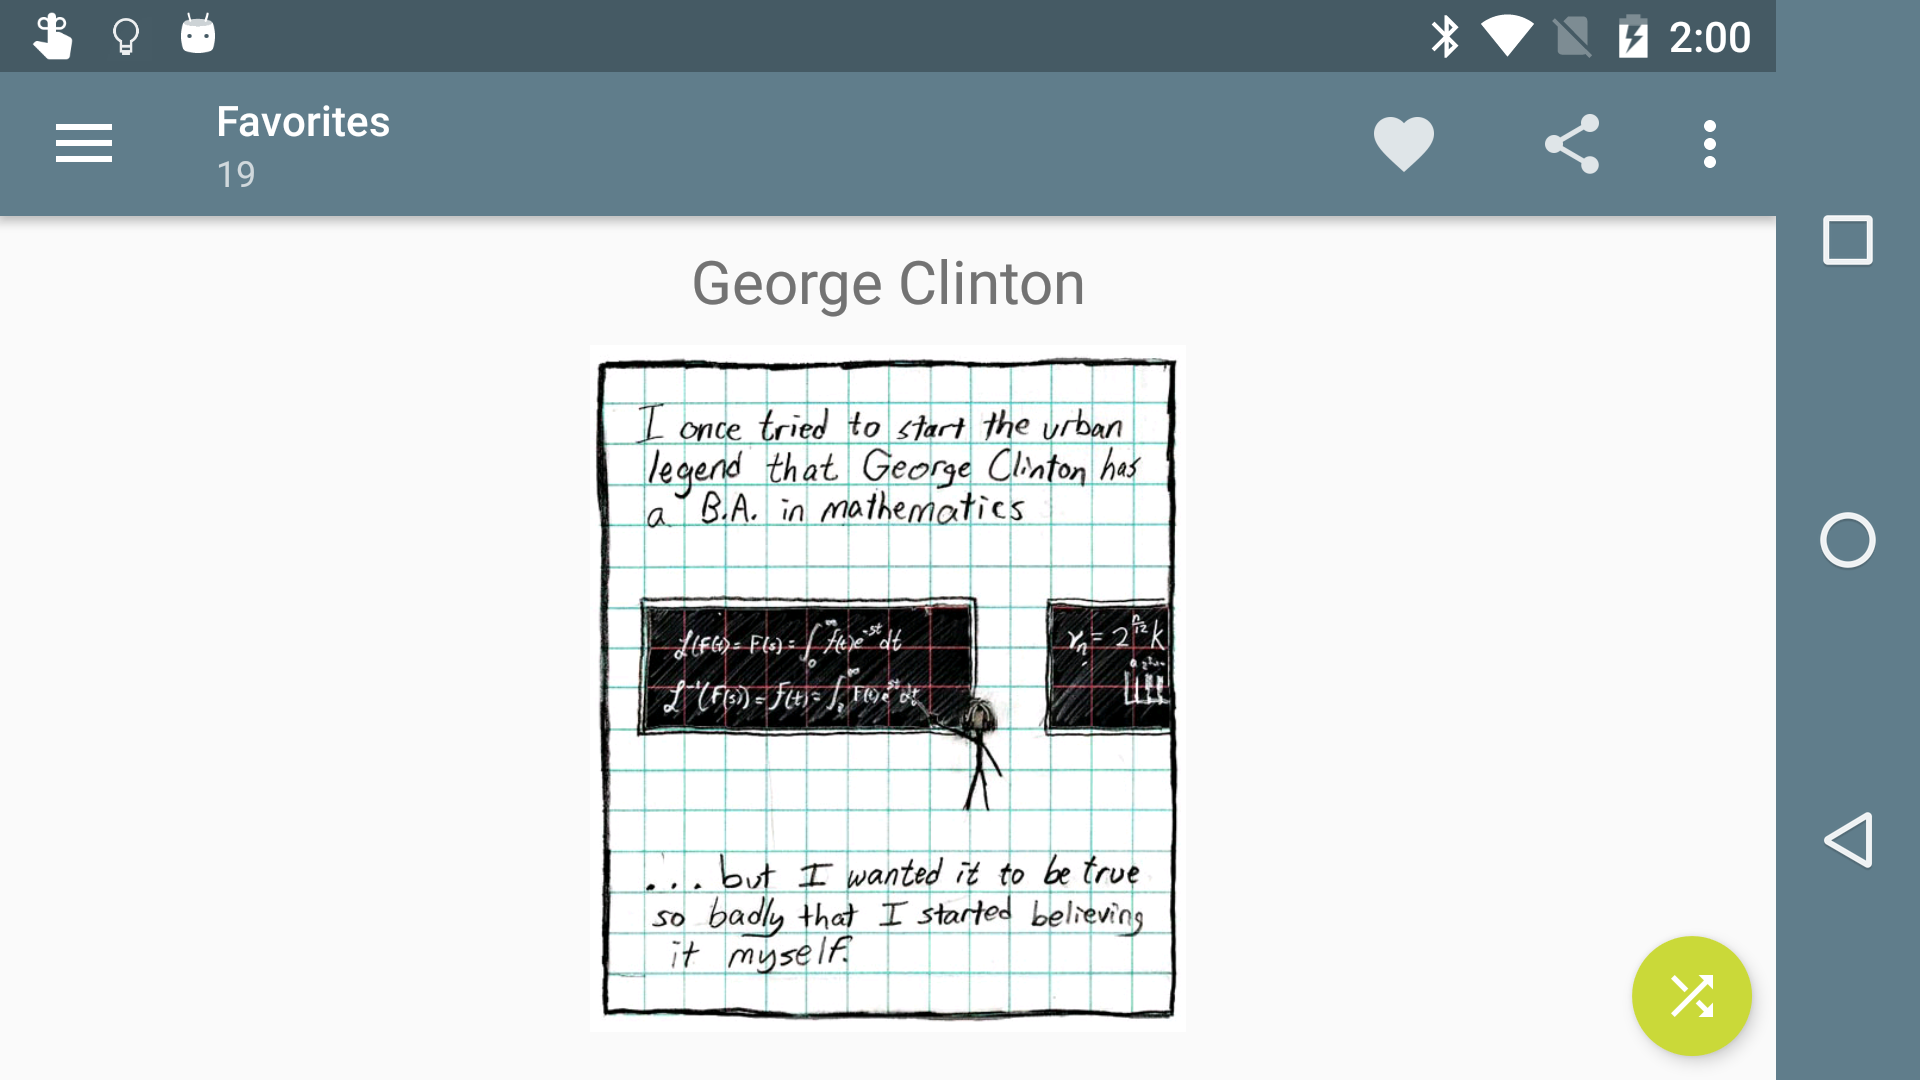 2:00
Favorites
19
George Clinton
I once tried to start the urban
legend that George Clinton has
a B.A. in mathematics
... but I wanted it to be true
so badly that I started believing
it myself.